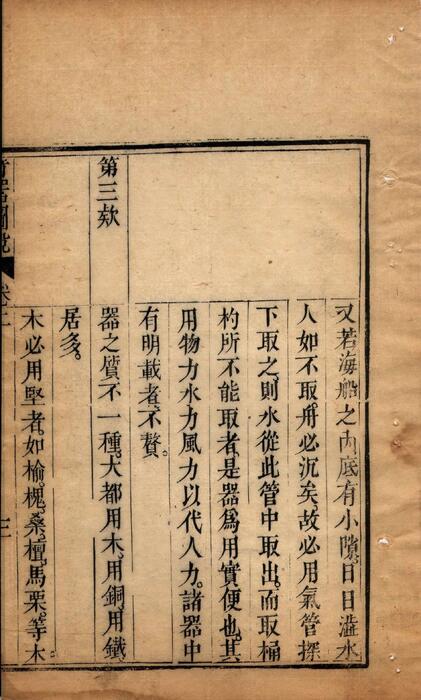 又若海船之內底有小隙日日溢水
人如不取舟必沉矣故必用氣管探
下取之則水從此管中取出而取桶
杓所不能取者是器爲用實便也其
用物力水力風力以代人力諸器中
有明載者不贅
第三欵 器之質不一種大都用木用銅用鐵
居多
木必用堅者如榆槐桑檀馬栗等木
奇器圖說 卷二